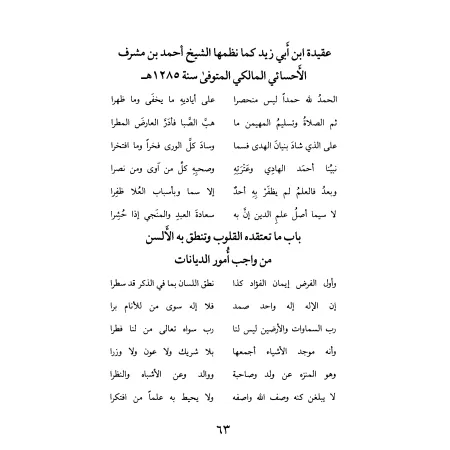 عقيدة ابن أَبي زيد كما نظمها الشيخ أحمد بن مشرف
الأَحسائي المالكي المتوفىٰ سنة ١٢٨٥هـ
الحمدُ لله حمداً ليس منحصرا على أياديهِ ما يخفَى وما ظهرا
ثم الصلاةُ وتسليمُ المهيمن ما هبَّ الصَّبا فأدَرَّ العارضُ المطرا
على الذي شادَ بنيانَ الهدى فسما وسادَ كلَّ الورى فخراً وما افتخرا
نبيُّنا أحمَد الهادِي وعَتْرَتِهِ وصحبِهِ كلَّ من آوى ومن نصرا
وبعدُ فالعلمُ لم يظفَرْ بِهِ أحدٌ إلا سما وبأسباب العُلا ظَفِرا
لا سيما أصلُ علمِ الدين إنَّ به سعادةَ العبدِ والمنَجي إذا حُشِرا
باب ما تعتقده القلوب وتنطق به الأَلسن
من واجب أُمور الديانات
وأول الفرض إيمان الفؤاد كذا نطق اللسان بما في الذكر قد سطرا
إن الإله إله واحد صمد فلا إله سوى من للأنام برا
رب السماوات والأرضين ليس لنا رب سواه تعالى من لنا فطرا
وأنه موجد الأشياء أجمعها بلا شريك ولا عون ولا وزرا
وهو المنزه عن ولد وصاحبة ووالد وعن الأشباه والنظرا
لا يبلغن كنه وصف الله واصفه ولا يحيط به علماً من افتكرا
٦٣